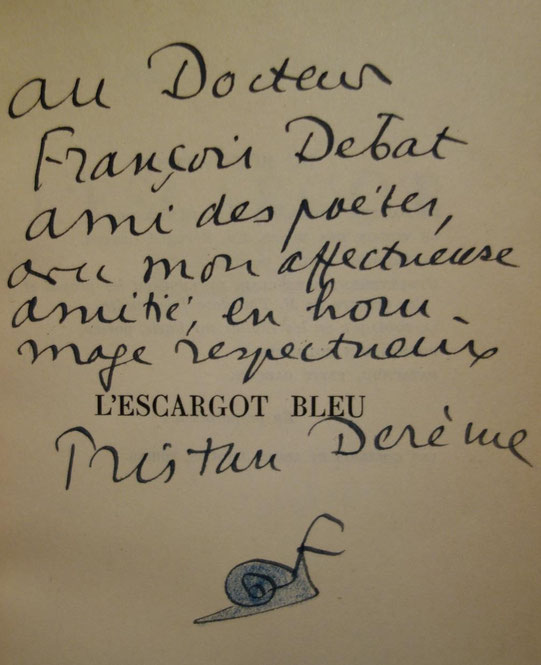 au Docteur
François Debat
ami des poètes,
avec mon affectueuse
amitié, en hom-
mage respectueux
L'ESCARGOT BLEU
Tristan Derème